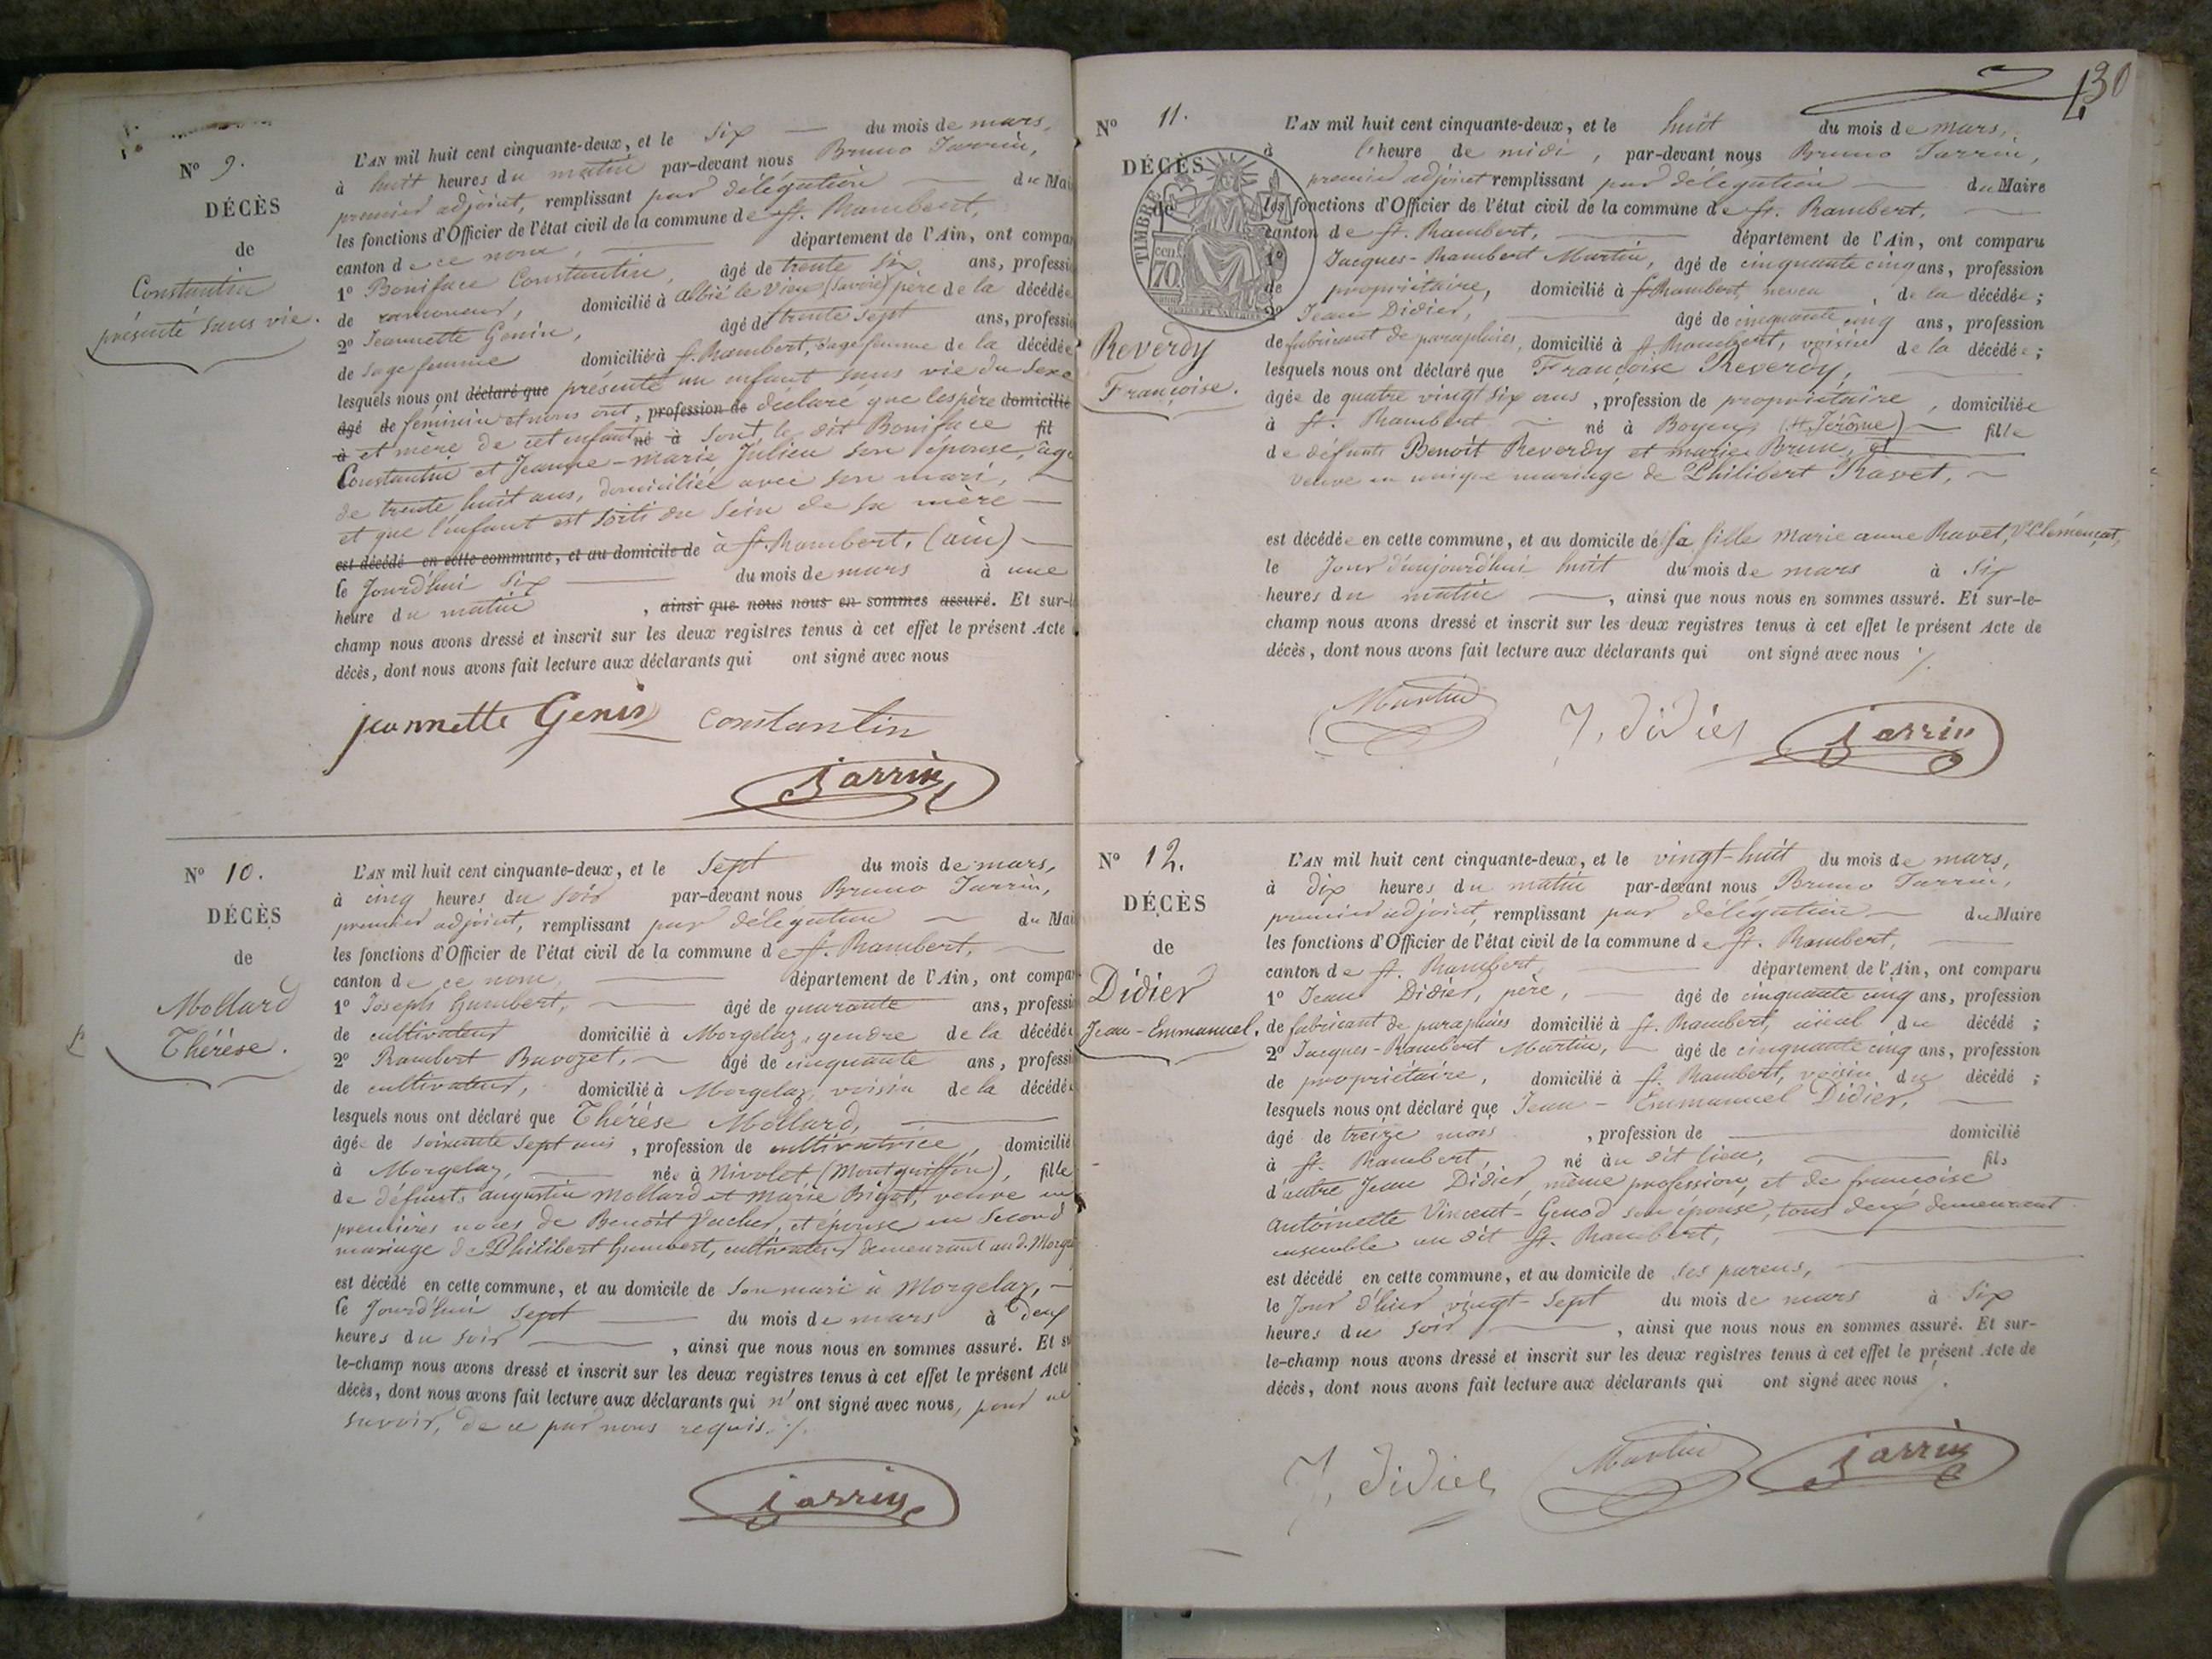 N° 9.
DÉCÈS
de
Constantin
présenté sans vie.
L'AN mil huit cent cinquante-deux, et le six du mois de mars,
à huit heures du matin par-devant nous Bruno Jarrin,
premier adjoint, remplissant par délégation du Mai
les fonctions d'Officier de l'état civil de la commune de St. Rambert,
canton de ce nom, département de l'Ain, ont compa
1° Boniface Constantin, âgé de trente six ans, professi
de ramoneur, domicilié à Albié le Vieux (Savoie) père de la décédée
2° Jeannette Genin, âgé de trente sept ans, professi
de sage femme domiciliée à St. Rambert, sage femme de la décédée
lesquels nous ont déclaré que présenté un enfant sans vie du sexe
âgé de féminin et nous ont, profession de déclaré que les père domicilié
à et mère de cet enfant né à sont le dit Boniface fil
Constantin et Jeanne-Marie Julien son épouse, âgé
de trente huit ans, domiciliée avec son mari,
et que l'enfant est sorti du sein de sa mère
est décédé en cette commune, et au domicile de à St. Rambert, (ain)
le Jourd'hui six du mois de mars à une
heure du matin, ainsi que nous nous en sommes assuré. Et sur-l
champ nous avons dressé et inscrit sur les deux registres tenus à cet effet le présent Acte
décès, dont nous avons fait lecture aux déclarants qui ont signé avec nous
jeannette Genin constantin
Jarrin
N° 10.
DÉCÈS
de
Mollard
Thérèse.
L'AN mil huit cent cinquante-deux, et le sept du mois de mars,
à cinq heures du soir par-devant nous Bruno Jarrin,
premier adjoint, remplissant par délégation du Mai
les fonctions d'Officier de l'état civil de la commune de St. Rambert,
canton de ce nom, département de l'Ain, ont compar
1° Joseph Humbert, âgé de quarante ans, professi
de cultivateur domicilié à Morgelaz, gendre de la décédée
2° Rambert Bavozet, âgé de cinquante ans, professi
de cultivateur, domicilié à Morgelaz, voisin de la décédé
lesquels nous ont déclaré que Thérèse Mollard,
âgée de soixante sept ans, profession de cultivatrice, domicilié
à Morgelaz, née à Nivolet (Montgriffon), fille
de défunts augustin Mollard et Marie Bigot, veuve en
premières noces de Benoît Vacher, et épouse en second
mariage de Philibert Humbert, cultivateur demeurant au d. Morge
est décédé en cette commune, et au domicile de son mari à Morgelaz,
le Jourd'hui sept du mois de mars à deux
heures du soir, ainsi que nous nous en sommes assuré. Et s
le-champ nous avons dressé et inscrit sur les deux registres tenus à cet effet le présent Acte
décès, dont nous avons fait lecture aux déclarants qui n'ont signé avec nous, pour ne
savoir, de ce par nous requis ./.
Jarrin
130
N° 11.
DÉCÈS
de
TIMBRE
70
Reverdy
Françoise.
L'AN mil huit cent cinquante-deux, et le huit du mois de mars,
à l'heure de midi, par-devant nous Bruno Jarrin,
premier adjoint remplissant par délégation du Maire
les fonctions d'Officier de l'état civil de la commune de St. Rambert,
canton de St. Rambert, département de l'Ain, ont comparu
1° Jacques-Rambert Martin, âgé de cinquante cinq ans, profession
de propriétaire, domicilié à St. Rambert, neveu, de la décédée;
2° Jean Didier, âgé de cinquante cinq ans, profession
de fabricant de parapluies, domicilié à St. Rambert, voisin de la décédée;
lesquels nous ont déclaré que Françoise Reverdy,
âgée de quatre vingt six ans, profession de propriétaire, domiciliée
à St. Rambert né à Boyeux (St. Jérôme) fille
de défunts Benoît Reverdy et marie Brun, et
veuve en unique mariage de Philibert Ravet,
est décédée en cette commune, et au domicile de sa fille Marie anne Ravet, Ve Clémençat,
le Jour d'aujourd'hui huit du mois de mars à six
heures du matin, ainsi que nous nous en sommes assuré. Et sur-le-
champ nous avons dressé et inscrit sur les deux registres tenus à cet effet le présent Acte de
décès, dont nous avons fait lecture aux déclarants qui ont signé avec nous ./.
Martin J. Didier Jarrin
N° 12.
DÉCÈS
de
Didier
Jean-Emmanuel.
L'AN mil huit cent cinquante-deux, et le vingt-huit du mois de mars,
à dix heures du matin par-devant nous Bruno Jarrin,
premier adjoint, remplissant par délégation du Maire
les fonctions d'Officier de l'état civil de la commune de St. Rambert,
canton de St. Rambert, département de l'Ain, ont comparu
1° Jean Didier, père, âgé de cinquante cinq ans, profession
de fabricant de parapluies domicilié à St. Rambert, aïeul du décédé;
2° Jacques-Rambert Martin, âgé de cinquante cinq ans, profession
de propriétaire, domicilié à St. Rambert, voisin du décédé;
lesquels nous ont déclaré que Jean-Emmanuel Didier,
âgé de treize mois, profession de domicilié
à St. Rambert, né au dit lieu, fils
d'autre Jean Didier, même profession, et de françoise
antoinette Vincent-Genod son épouse, tous deux demeurant
ensemble au dit St. Rambert,
est décédé en cette commune, et au domicile de ses parens,
le Jour d'hier vingt-sept du mois de mars à six
heures du soir, ainsi que nous nous en sommes assuré. Et sur-
le-champ nous avons dressé et inscrit sur les deux registres tenus à cet effet le présent Acte de
décès, dont nous avons fait lecture aux déclarants qui ont signé avec nous ./.
J. Didier Martin Jarrin